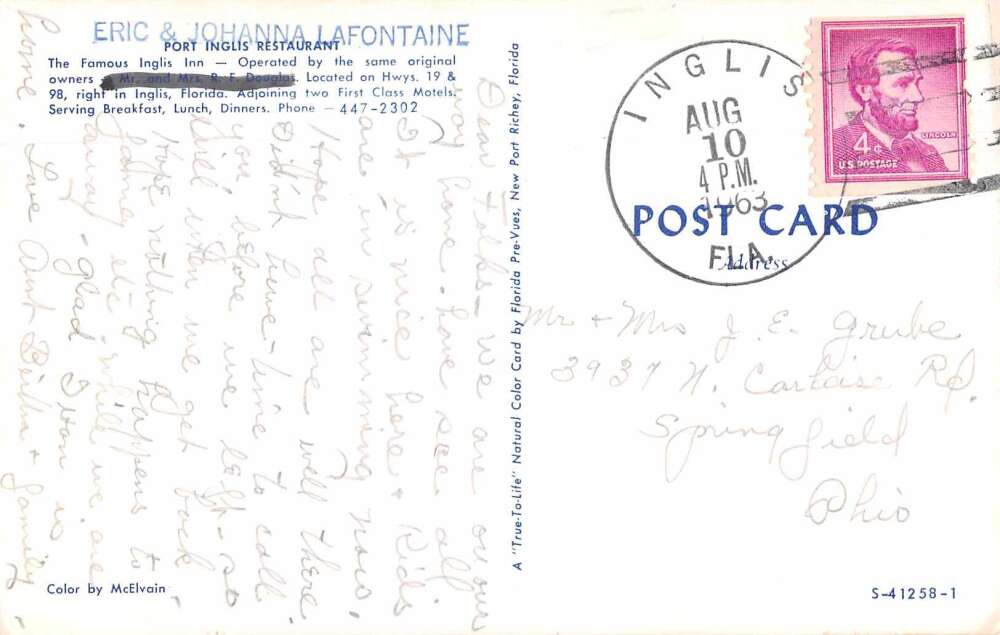 ERIC & JOHANNA LAFONTAINE
PORT INGLIS RESTAURANT
The Famous Inglis Inn — Operated by the same original
owners - Mr. and Mrs. R. F. Douglas. Located on Hwys. 19 &
98, right in Inglis, Florida. Adjoining two First Class Motels.
Serving Breakfast, Lunch, Dinners. Phone — 447-2302
Dear Folks - We are on our
way home. have see alf
It is nice here & Kids
are in swimming now.
Hope all are well there
Did'nt have time to call
you before we left - so
will when we get back
Hope nothing happens to
Jamey etc while we are
away - glad is
home. Love Aunt & family -
Color by McElvain
A "True-To-Life" Natural Color Card by Florida Pre-Vues, New Port Richey, Florida
INGLIS
AUG
10
4 P.M.
1963
FLA.
LINCOLN
4¢
U.S. POSTAGE
POST CARD
Address
Mr + Mrs J. E. Grube
3937 N. Carlise Rd.
Springfield
Ohio
S-41258-1